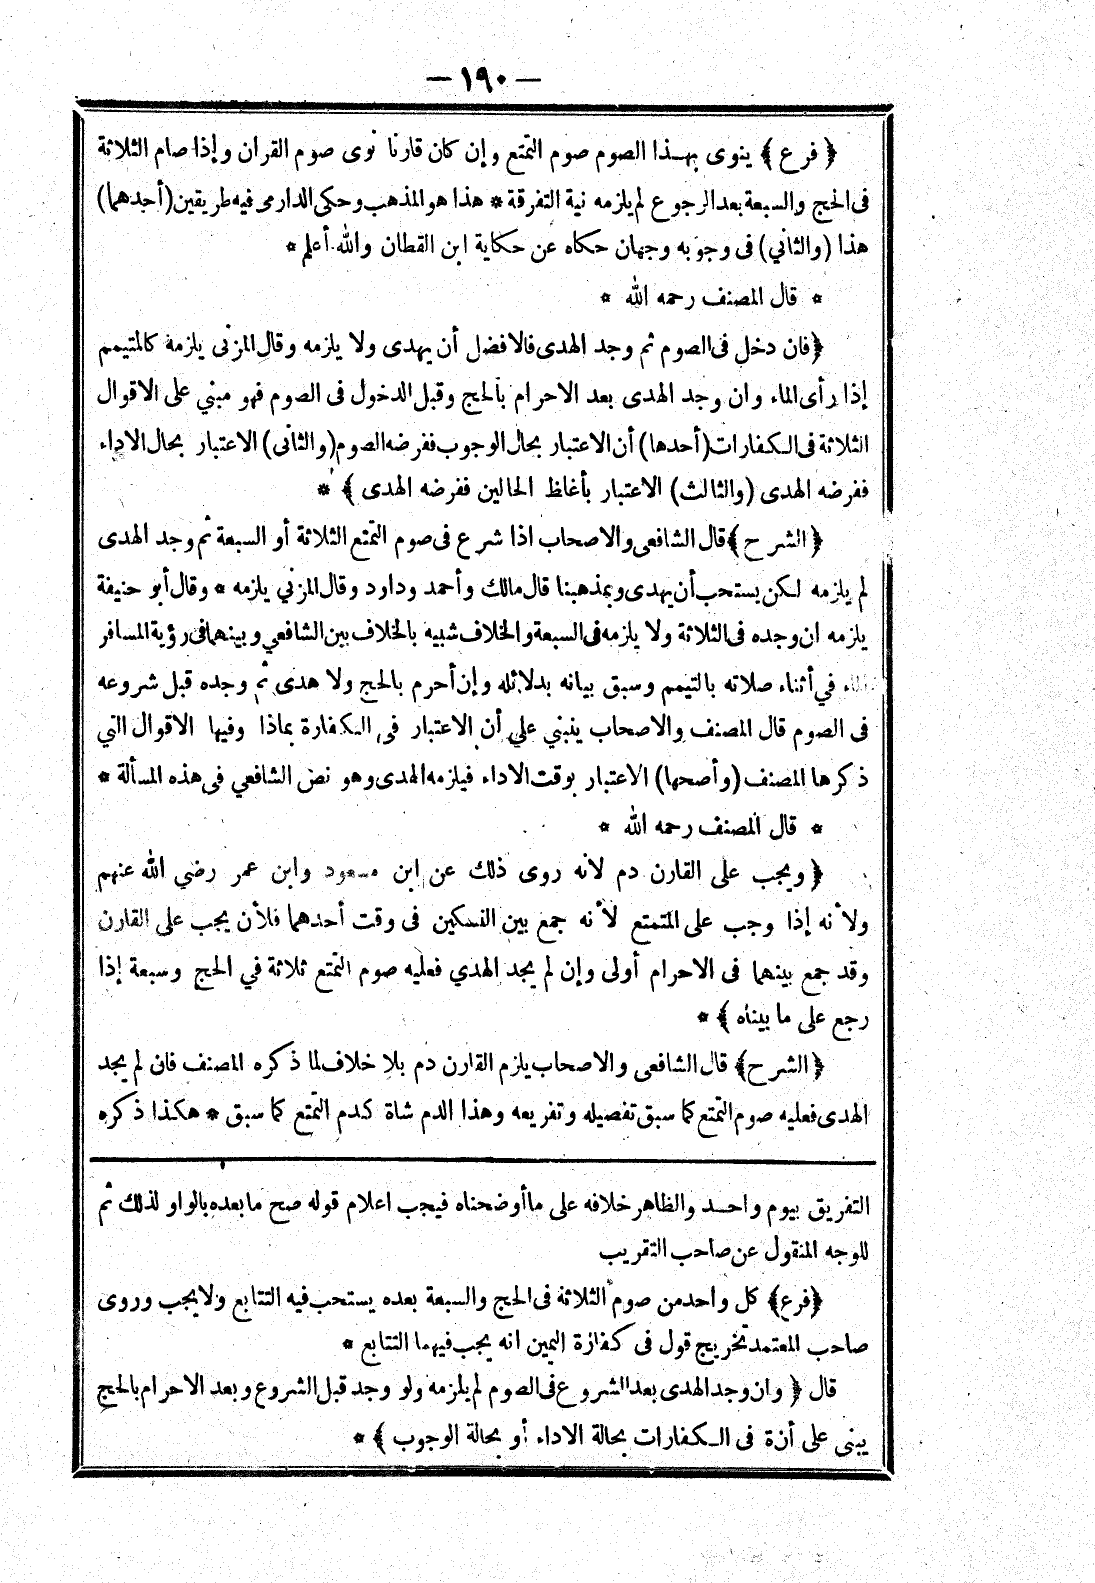 — ١٩٠ —
﴿ فرع ﴾ ينوى بهـذا الصوم صوم التمتع وإن كان قارنا نوى صوم القران وإذا صام الثلاثة
فى الحج والسبعة بعد الرجوع لم يلزمه نية التفرقة * هذا هو المذهب وحكى الدارمى فيه طريقين (أحدهما)
هذا (والثاني) فى وجوبه وجهان حكاه عن حكاية ابن القطان والله أعلم *
* قال المصنف رحمه الله *
﴿ فان دخل فى الصوم ثم وجد الهدى فالافضل أن يهدى ولا يلزمه وقال المزنى يلزمه كالمتيمم
إذا رأى الماء وان وجد الهدى بعد الاحرام بالحج وقبل الدخول فى الصوم فهو مبني على الاقوال
الثلاثة فى الـكفارات (أحدها) أن الاعتبار بحال الوجوب ففرضه الصوم (والثانى) الاعتبار بحال الاداء
ففرضه الهدى (والثالث) الاعتبار بأغلظ الحالين ففرضه الهدى ﴾ *
﴿ الشرح ﴾ قال الشافعى والاصحاب اذا شرع فى صوم التمتع الثلاثة أو السبعة ثم وجد الهدى
لم يلزمه لـكن يستحب أن يهدى وبمذهبنا قال مالك وأحمد وداود وقال المزني يلزمه * وقال أبو حنيفة
يلزمه ان وجده فى الثلاثة ولا يلزمه فى السبعة والخلاف شبيه بالخلاف بين الشافعي وبينهما فى رؤية المسافر
الماء في أثناء صلاته بالتيمم وسبق بيانه بدلائله وإن أحرم بالحج ولا هدى ثم وجده قبل شروعه
فى الصوم قال المصنف والاصحاب ينبني علي أن الاعتبار فى الـكفارة بماذا وفيها الاقوال التي
ذكرها المصنف (وأصحها) الاعتبار بوقت الاداء فيلزمه الهدى وهو نص الشافعي فى هذه المسألة *
* قال المصنف رحمه الله *
﴿ ويجب على القارن دم لانه روى ذلك عن ابن مسعود وابن عمر رضي الله عنهم
ولأنه إذا وجب على المتمتع لأنه جمع بين النسكين فى وقت أحدهما فلأن يجب على القارن
وقد جمع بينهما فى الاحرام أولى وإن لم يجد الهدي فعليه صوم التمتع ثلاثة في الحج وسبعة إذا
رجع على ما بيناه ﴾ *
﴿ الشرح ﴾ قال الشافعى والاصحاب يلزم القارن دم بلا خلاف لما ذكره المصنف فان لم يجد
الهدى فعليه صوم التمتع كما سبق تفصيله وتفريعه وهذا الدم شاة كدم التمتع كما سبق * هكذا ذكره
التفريق بيوم واحـد والظاهر خلافه على ما أوضحناه فيجب اعلام قوله صح ما بعده بالواو لذلك ثم
للوجه المنقول عن صاحب التقريب
﴿ فرع ﴾ كل واحد من صوم الثلاثة فى الحج والسبعة بعده يستحب فيه التتابع ولا يجب وروى
صاحب المعتمد تخريج قول فى كفارة اليمين انه يجب فيهما التتابع *
قال ﴿ وان وجد الهدى بعد الشروع فى الصوم لم يلزمه ولو وجد قبل الشروع وبعد الاحرام بالحج
يبنى على أنه فى الـكفارات بحالة الاداء أو بحالة الوجوب ﴾ *